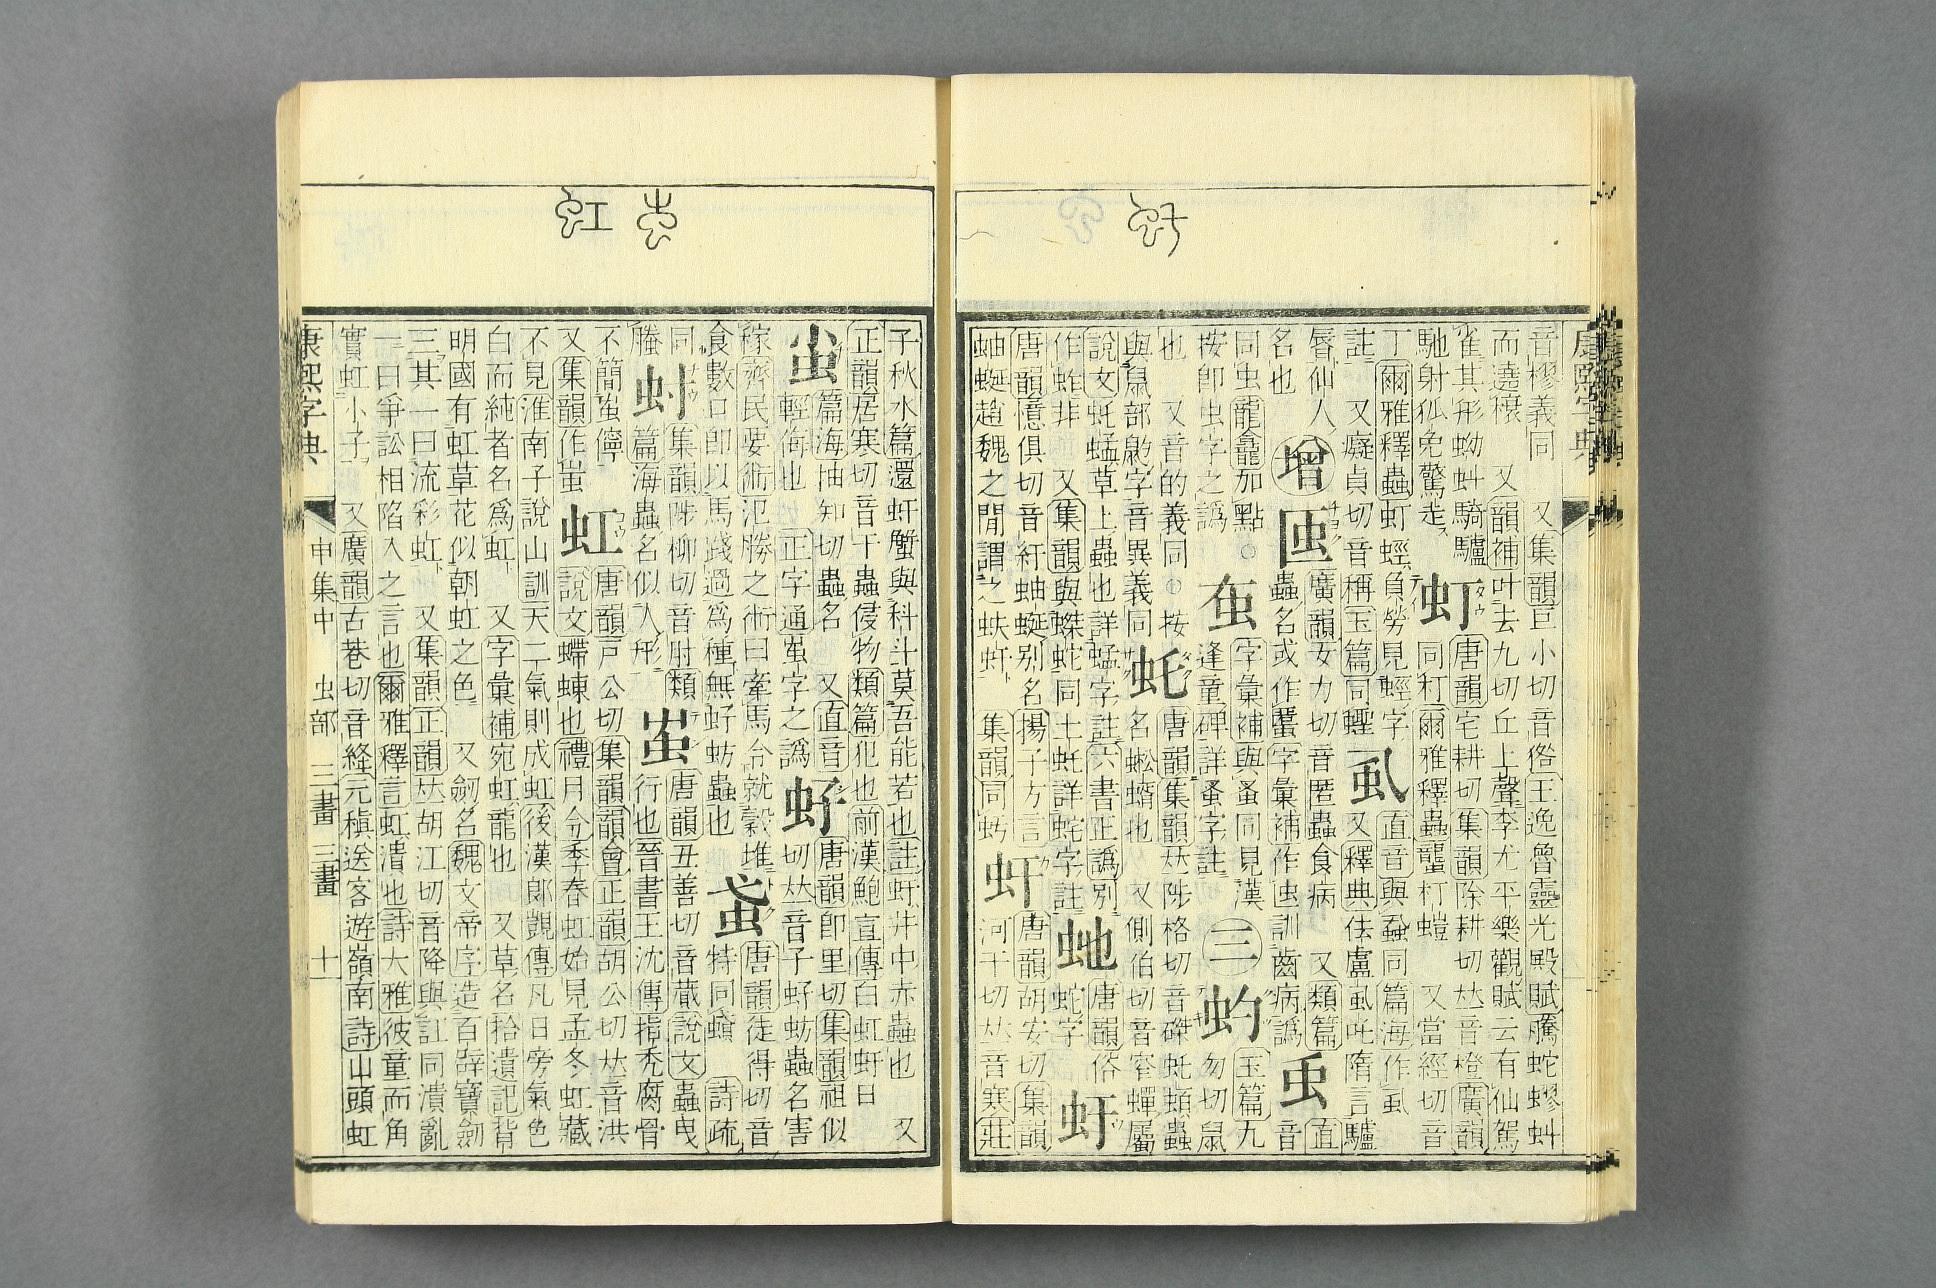 虯
音樛義同　又集韻巨小切音𠎁王逸魯靈光殿賦騰蛇蟉虯
而遶榱　又韻補叶去九切丘上聲李尤平樂觀賦云有仙駕
雀其形蚴虯騎驢
馳射狐兔驚走
虰
唐韻宅耕切集韻除耕切𠀤音橙廣韻
同朾爾雅釋蟲蠪朾螘　又當經切音
丁爾雅釋蟲虰蛵負勞見蛵字
註　又癡貞切音稱玉篇同蟶
虱
直音與蝨同篇海作虱
又釋典佉盧虱吒隋言驢
脣仙人
名也
增
𧈩
廣韻女力切音匿蟲食病　又類篇
蟲名或作䘌字彙補作虫訓齒病譌
䖝
直
音
同虫龍龕加點○
按卽虫字之譌
字彙補與蚤同見漢
逢童碑詳蚤字註
三
虳
玉篇九
勿切鼠
也　又音的義同○按
與鼠部䶂字音異義同
虴
唐韻集韻𠀤陟格切音磔虴蜢蟲
名蚣蝑也　又側伯切音窄蟬屬
說文虴蜢草上蟲也詳蜢字註六書正譌別
作蚱非　又集韻與蛇同土虵詳蛇字註
虵
唐韻俗
蛇字
虶
唐韻憶俱切音紆蚰蜒別名揚子方言
蚰蜒趙魏之閒謂之蚨虶　集韻同
虷
唐韻胡安切集韻
河干切𠀤音寒莊
康熙字典
虹
子秋水篇還虷蟹與科斗莫吾能若也註虷井中赤蟲也　又
正韻居寒切音干蟲侵物類篇犯也前漢鮑宣傳白虹虷日
篇海抽知切蟲名　又直音
輕侮也　正字通蚩字之譌
虸
唐韻卽里切集韻祖似
切𠀤音子虸蚄蟲名害
稼齊民要術氾勝之術曰牽馬令就穀堆
食數口卽以馬踐過爲種無虸蚄蟲也
唐韻徒得切音
特同　詩疏
同
螣
集韻陟柳切音肘類
篇海蟲名似人形
蚩
唐韻丑善切音蕆說文蟲曳
行也晉書王沈傳指禿腐骨
不簡蚩儜
又集韻作蚩
虹
唐韻戸公切集韻韻會正韻胡公切𠀤音洪
說文螮蝀也禮月令季春虹始見孟冬虹藏
不見淮南子說山訓天二氣則成虹後漢郞顗傳凡日旁氣色
白而純者名爲虹　又字彙補宛虹龍也　又草名拾遺記背
明國有虹草花似朝虹之色　又劒名魏文帝序造百辟寶劒
三其一曰流彩虹　又集韻正韻𠀤胡江切音降與訌同潰亂
一曰爭訟相陷入之言也爾雅釋言虹潰也詩大雅彼童而角
實虹小子　又廣韻古巷切音絳元稹送客遊嶺南詩山頭虹
康熙字典　申集中　虫部　二畫　三畫　十一